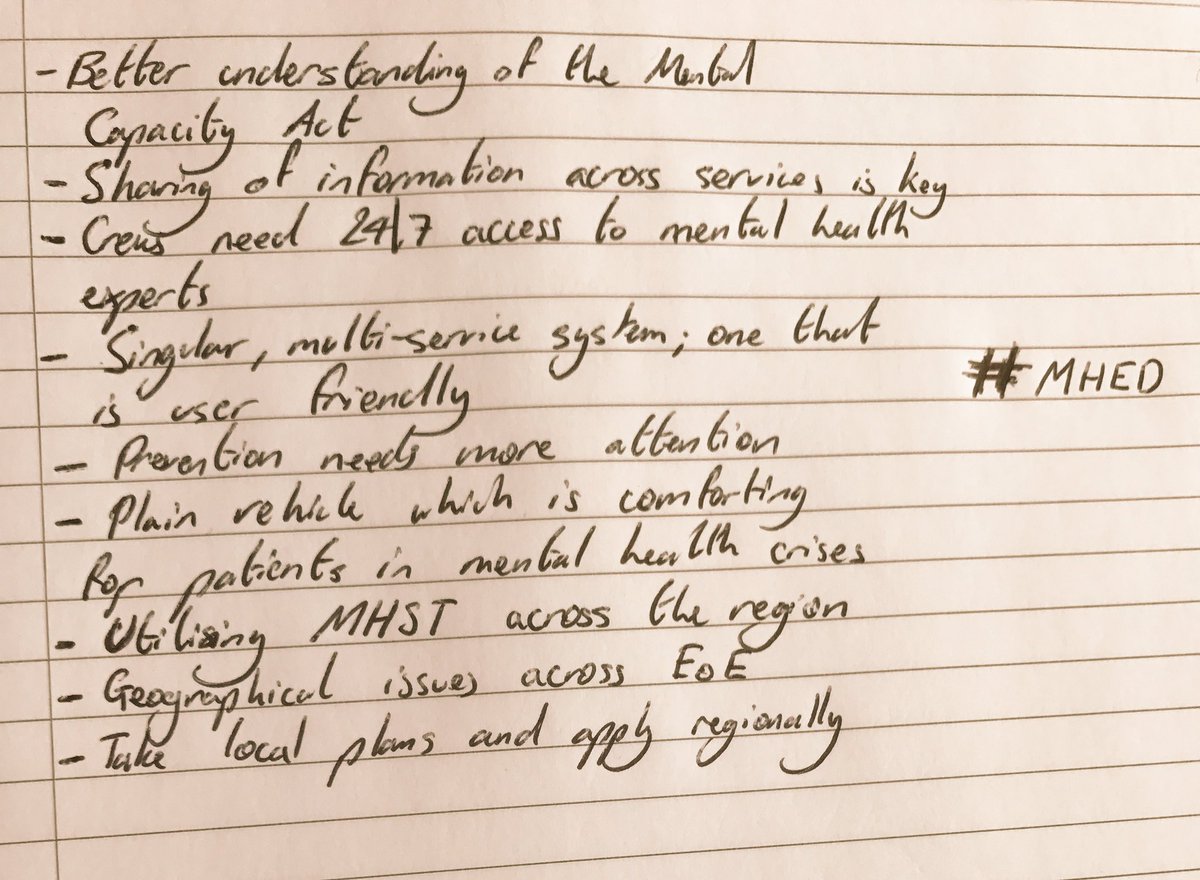 - Better understanding of the Mental
Capacity Act
- Sharing of information across services is key
- Crews need 24/7 access to mental health
experts
- Singular, multi-service system; one that
is user friendly
# MHED
- Prevention needs more attention
- Plain vehicle which is comforting
for patients in mental health crises
- Utilising MHST across the region
- Geographical issues across EoE
- Take local plans and apply regionally